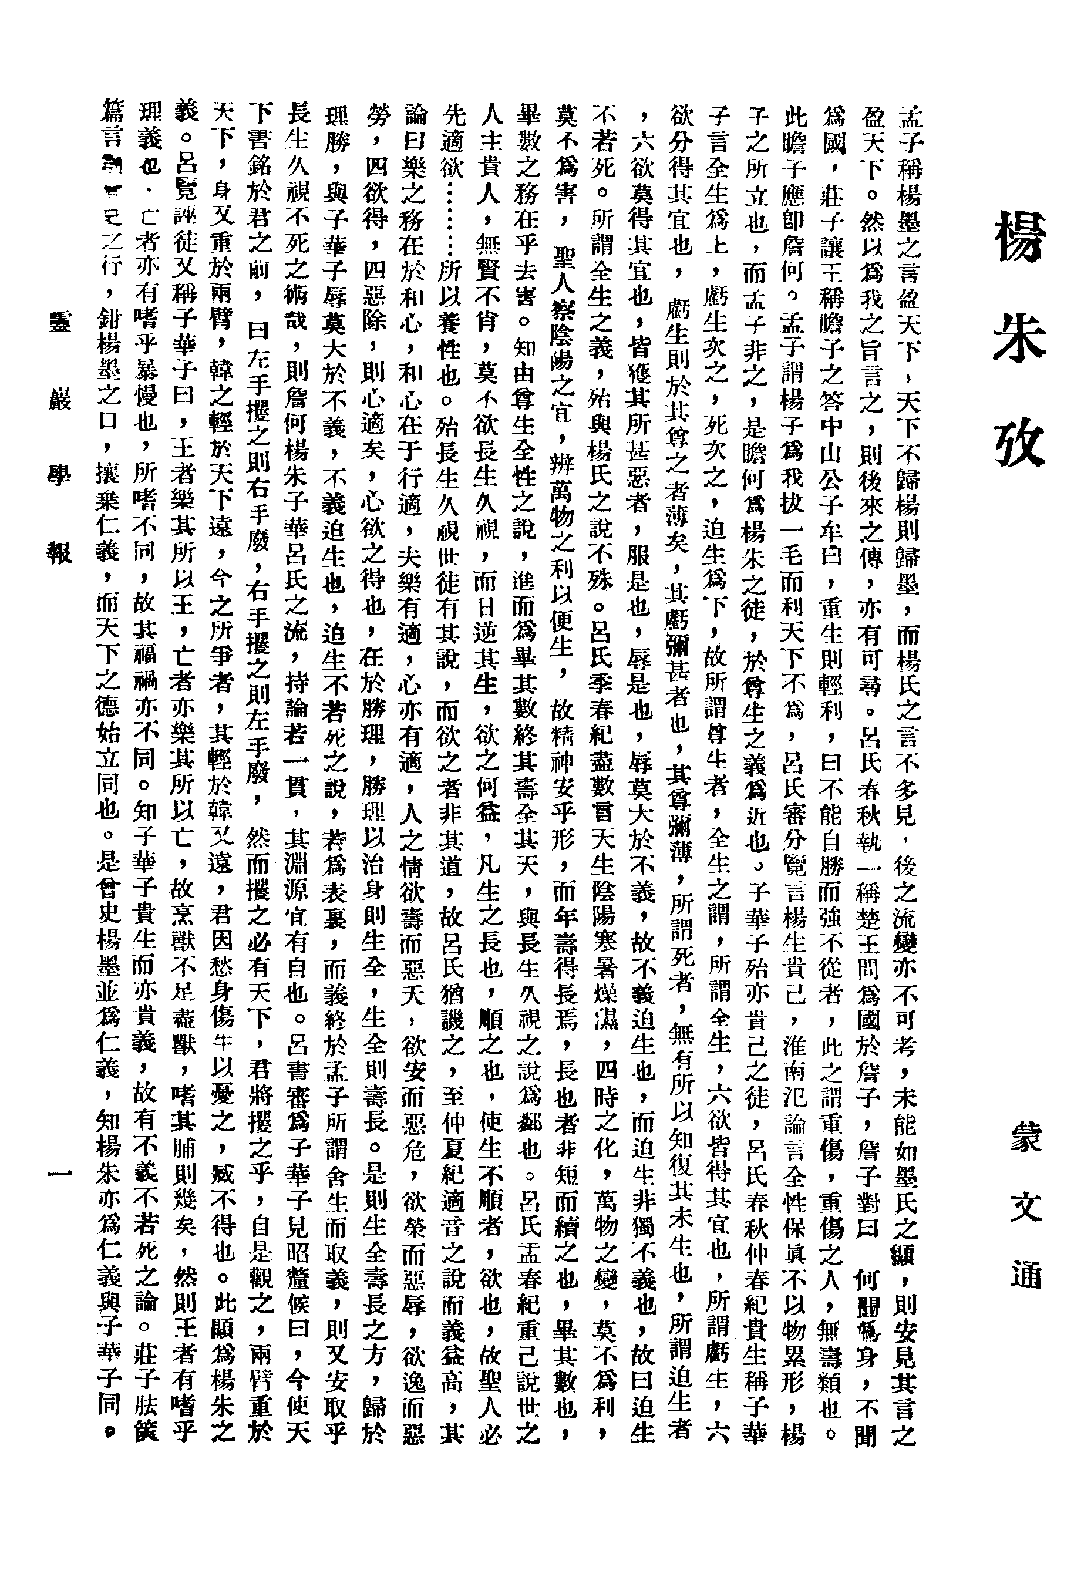 楊朱攷
蒙文通
孟子稱楊墨之言盈天下，天下不歸楊則歸墨，而楊氏之言不多見，後之流變亦不可考，未能如墨氏之顯，則安見其言之
盈天下。然以爲我之旨言之，則後來之傳，亦有可尋。呂氏春秋執一稱楚王問爲國於詹子，詹子對曰　何聞爲身，不聞
爲國，莊子讓王稱瞻子之答中山公子牟曰，重生則輕利，曰不能自勝而強不從者，此之謂重傷，重傷之人，無壽類也。
此瞻子應卽詹何。孟子謂楊子爲我拔一毛而利天下不爲，呂氏審分覽言楊生貴己，淮南氾論言全性保眞不以物累形，楊
子之所立也，而孟子非之，是瞻何爲楊朱之徒，於尊生之義爲近也。子華子殆亦貴己之徒，呂氏春秋仲春紀貴生稱子華
子言全生爲上，虧生次之，死次之，迫生爲下，故所謂尊生者，全生之謂，所謂全生，六欲皆得其宜也，所謂虧生，六
欲分得其宜也，虧生則於其尊之者薄矣，其虧彌甚者也，其尊彌薄，所謂死者，無有所以知復其未生也，所謂迫生者
，六欲莫得其宜也，皆獲其所甚惡者，服是也，辱是也，辱莫大於不義，故不義迫生也，而迫生非獨不義也，故曰迫生
不若死。所謂全生之義，殆與楊氏之說不殊。呂氏季春紀盡數言天生陰陽寒暑燥濕，四時之化，萬物之變，莫不爲利，
莫不爲害，聖人察陰陽之宜，辨萬物之利以便生，故精神安乎形，而年壽得長焉，長也者非短而續之也，畢其數也，
畢數之務在乎去害。知由尊生全性之說，進而爲畢其數終其壽全其天，與長生久視之說爲鄰也。呂氏孟春紀重己說世之
人主貴人，無賢不肖，莫不欲長生久視，而日逆其生，欲之何益，凡生之長也，順之也，使生不順者，欲也，故聖人必
先適欲………所以養性也。殆長生久視世徒有其說，而欲之者非其道，故呂氏猶譏之，至仲夏紀適音之說而義益高，其
論曰樂之務在於和心，和心在于行適，夫樂有適，心亦有適，人之情欲壽而惡夭，欲安而惡危，欲榮而惡辱，欲逸而惡
勞，四欲得，四惡除，則心適矣，心欲之得也，在於勝理，勝理以治身則生全，生全則壽長。是則生全壽長之方，歸於
理勝，與子華子辱莫大於不義，不義迫生也，迫生不若死之說，若爲表裏，而義終於孟子所謂舍生而取義，則又安取乎
長生久視不死之術哉，則詹何楊朱子華呂氏之流，持論若一貫，其淵源宜有自也。呂書審爲子華子見昭釐候曰，今使天
下書銘於君之前，曰左手攫之則右手廢，右手攫之則左手廢，然而攫之必有天下，君將攫之乎，自是觀之，兩臂重於
天下，身又重於兩臂，韓之輕於天下遠，今之所爭者，其輕於韓又遠，君因愁身傷生以憂之，臧不得也。此顯爲楊朱之
義。呂覽誣徒又稱子華子曰，王者樂其所以王，亡者亦樂其所以亡，故烹獸不足盡獸，嗜其脯則幾矣，然則王者有嗜乎
理義也，亡者亦有嗜乎暴慢也，所嗜不同，故其福禍亦不同。知子華子貴生而亦貴義，故有不義不若死之論。莊子胠篋
篇言之行，鉗楊墨之口，攘棄仁義，而天下之德始立同也。是曾史楊墨並爲仁義，知楊朱亦爲仁義與子華子同。
靈巖學報
一